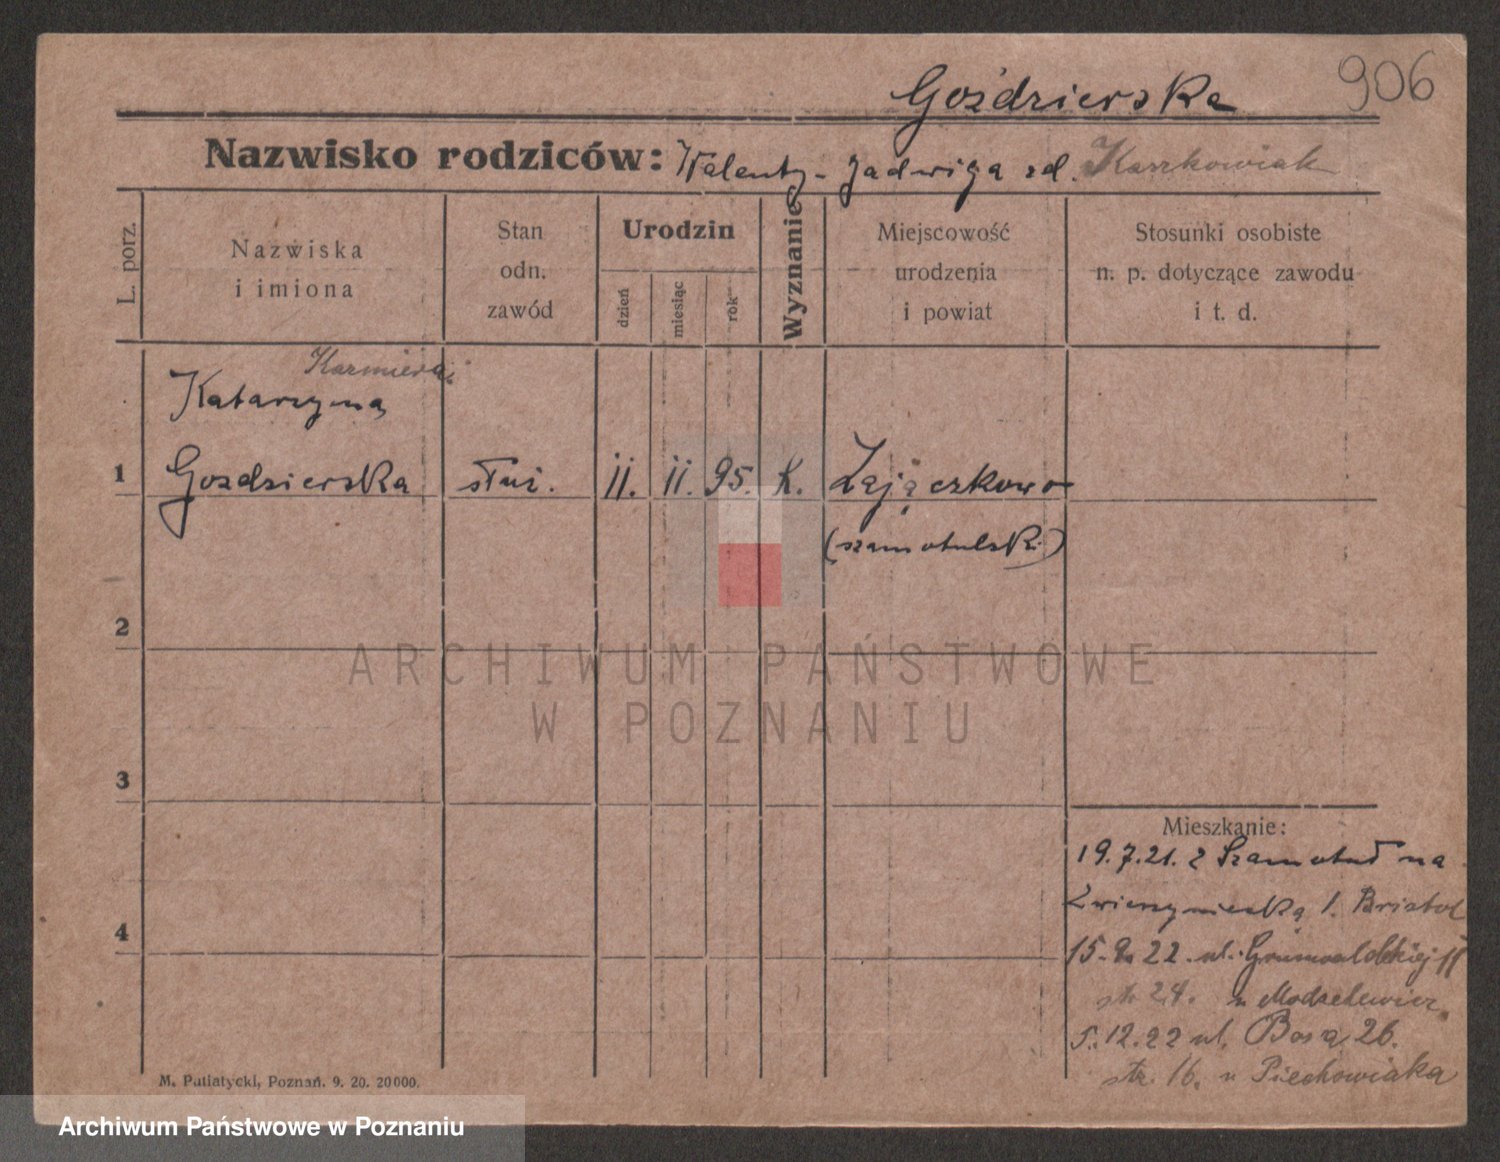 906
Goździerska
Nazwisko rodziców: Walenty - Jadwiga zd. Kaszkowiak
L. porz.
Nazwiska
i imiona
Stan
odn.
zawód
Urodzin
dzień
miesiąc
rok
Wyznanie
Miejscowość
urodzenia
i powiat
Stosunki osobiste
n. p. dotyczące zawodu
i t. d.
Katarzyna
1 Gozdzierska służ. 11. 11. 95. K. Zajączkowo
(szamotulski)
2
ARCHIWUM PAŃSTWOWE
W POZNANIU
3
4
Mieszkanie:
19.7.21. z Szamotuł na
Zwierzyniecką 1. Bristol
22. ul. Grunwaldzkiej 11
24. u Modzelewicz
5.12.22 ul. Bosa 26.
str. 16. u Piechowiaka
M. Putiatycki, Poznań. 9. 20. 20000.
Archiwum Państwowe w Poznaniu